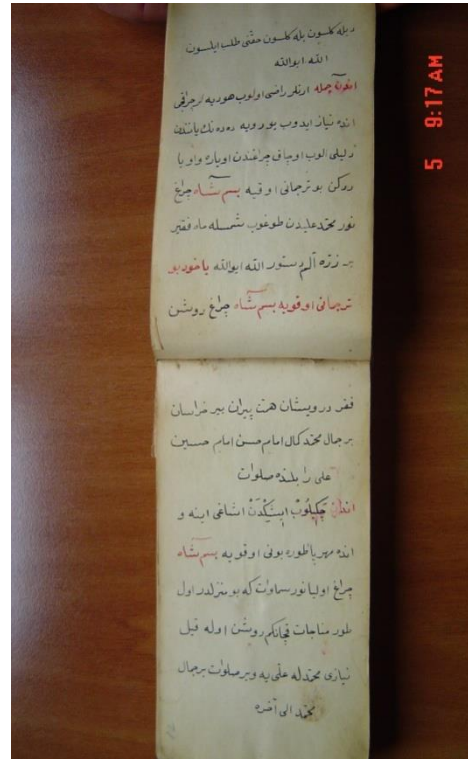 دیله کلسون یله کلسون حقنی طلب ایلسون
الله ایوالله
اندن جمله ارنلر راضی اولوب هودیه لر چراقی
انده نیاز ایدوب یورویه ددهنك یاننده
دلیلی الوب اوجاق چراغندن اویاره واویا
ررکن بو ترجمانی اوقیه بسم شاه چراغ
نور محمد علیدن طوغوب شمسله ماه فقیر
بر زره آلم دستور الله ایوالله یاخود بو
ترجمانی اوقویه بسم شاه چراغ روشن
فقر درویشان همت پیران پیر خراسان
بر جال محمد کمال امام حسن امام حسین
علی را بلنده صلوات
اندن چکیلوب ایشیکدن اشاغی اینه و
انده مهر یا طوره بونی اوقویه بسم شاه
چراغ اولیا نور سماوات که بو منزلدر اول
طور مناجات قچانکم روشن اوله قیل
نیازی محمدله علی یه ویر صلوات بر جال
محمد الی آخره
5 9:17AM